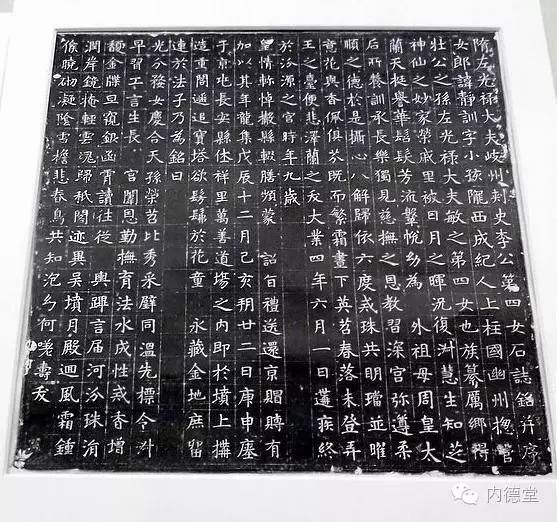 隋左光禄大夫岐州刾史李公第四女石誌銘并序
女郎諱靜訓字小孩隴西成紀人上柱國幽州揔管
壯公之孫左光禄大夫敏之第四女也族纂厲鄉得
神仙之妙家榮戚里被日月之暉況復淑慧生知芝
蘭天挺譽華髫髮芳流肇帨幼為 外祖母周皇太
后所養訓承長樂獨見慈撫之恩教習深宮弥遵柔
順之德於是攝心八解歸依六度戒珠共明璫並曜
意花與香佩俱芬既而繁霜晝下英苕春落未登弄
玉之臺便悲澤蘭之夭大業四年六月一日遘疾終
於汾源之宮時年九歲
皇情軫悼撤縣輟膳頻蒙 詔旨禮送還京賵賻有
加以其年龍集戊辰十二月己亥朔廿二日庚申瘞
于京兆長安縣休祥里萬善道塲之内即於墳上搆
造重閣遥追寳塔欲髣髴於花童 永藏金地庶留
連於法子乃為銘曰
光分婺女慶合天孫榮苕比秀采璧同溫先標令淑
早習工言生長 宮闈恩勤撫育法水成性戒香增
馥金牒亘窺銀函宵讀往從 輿蹕言届河汾珠涓
潤岸鏡掩輕雲魂歸秪閣迹異吳墳月殿迴風霜鍾
候曉砌凝陰雪檐悲春鳥共知泡幻何嗟壽夭
内德堂